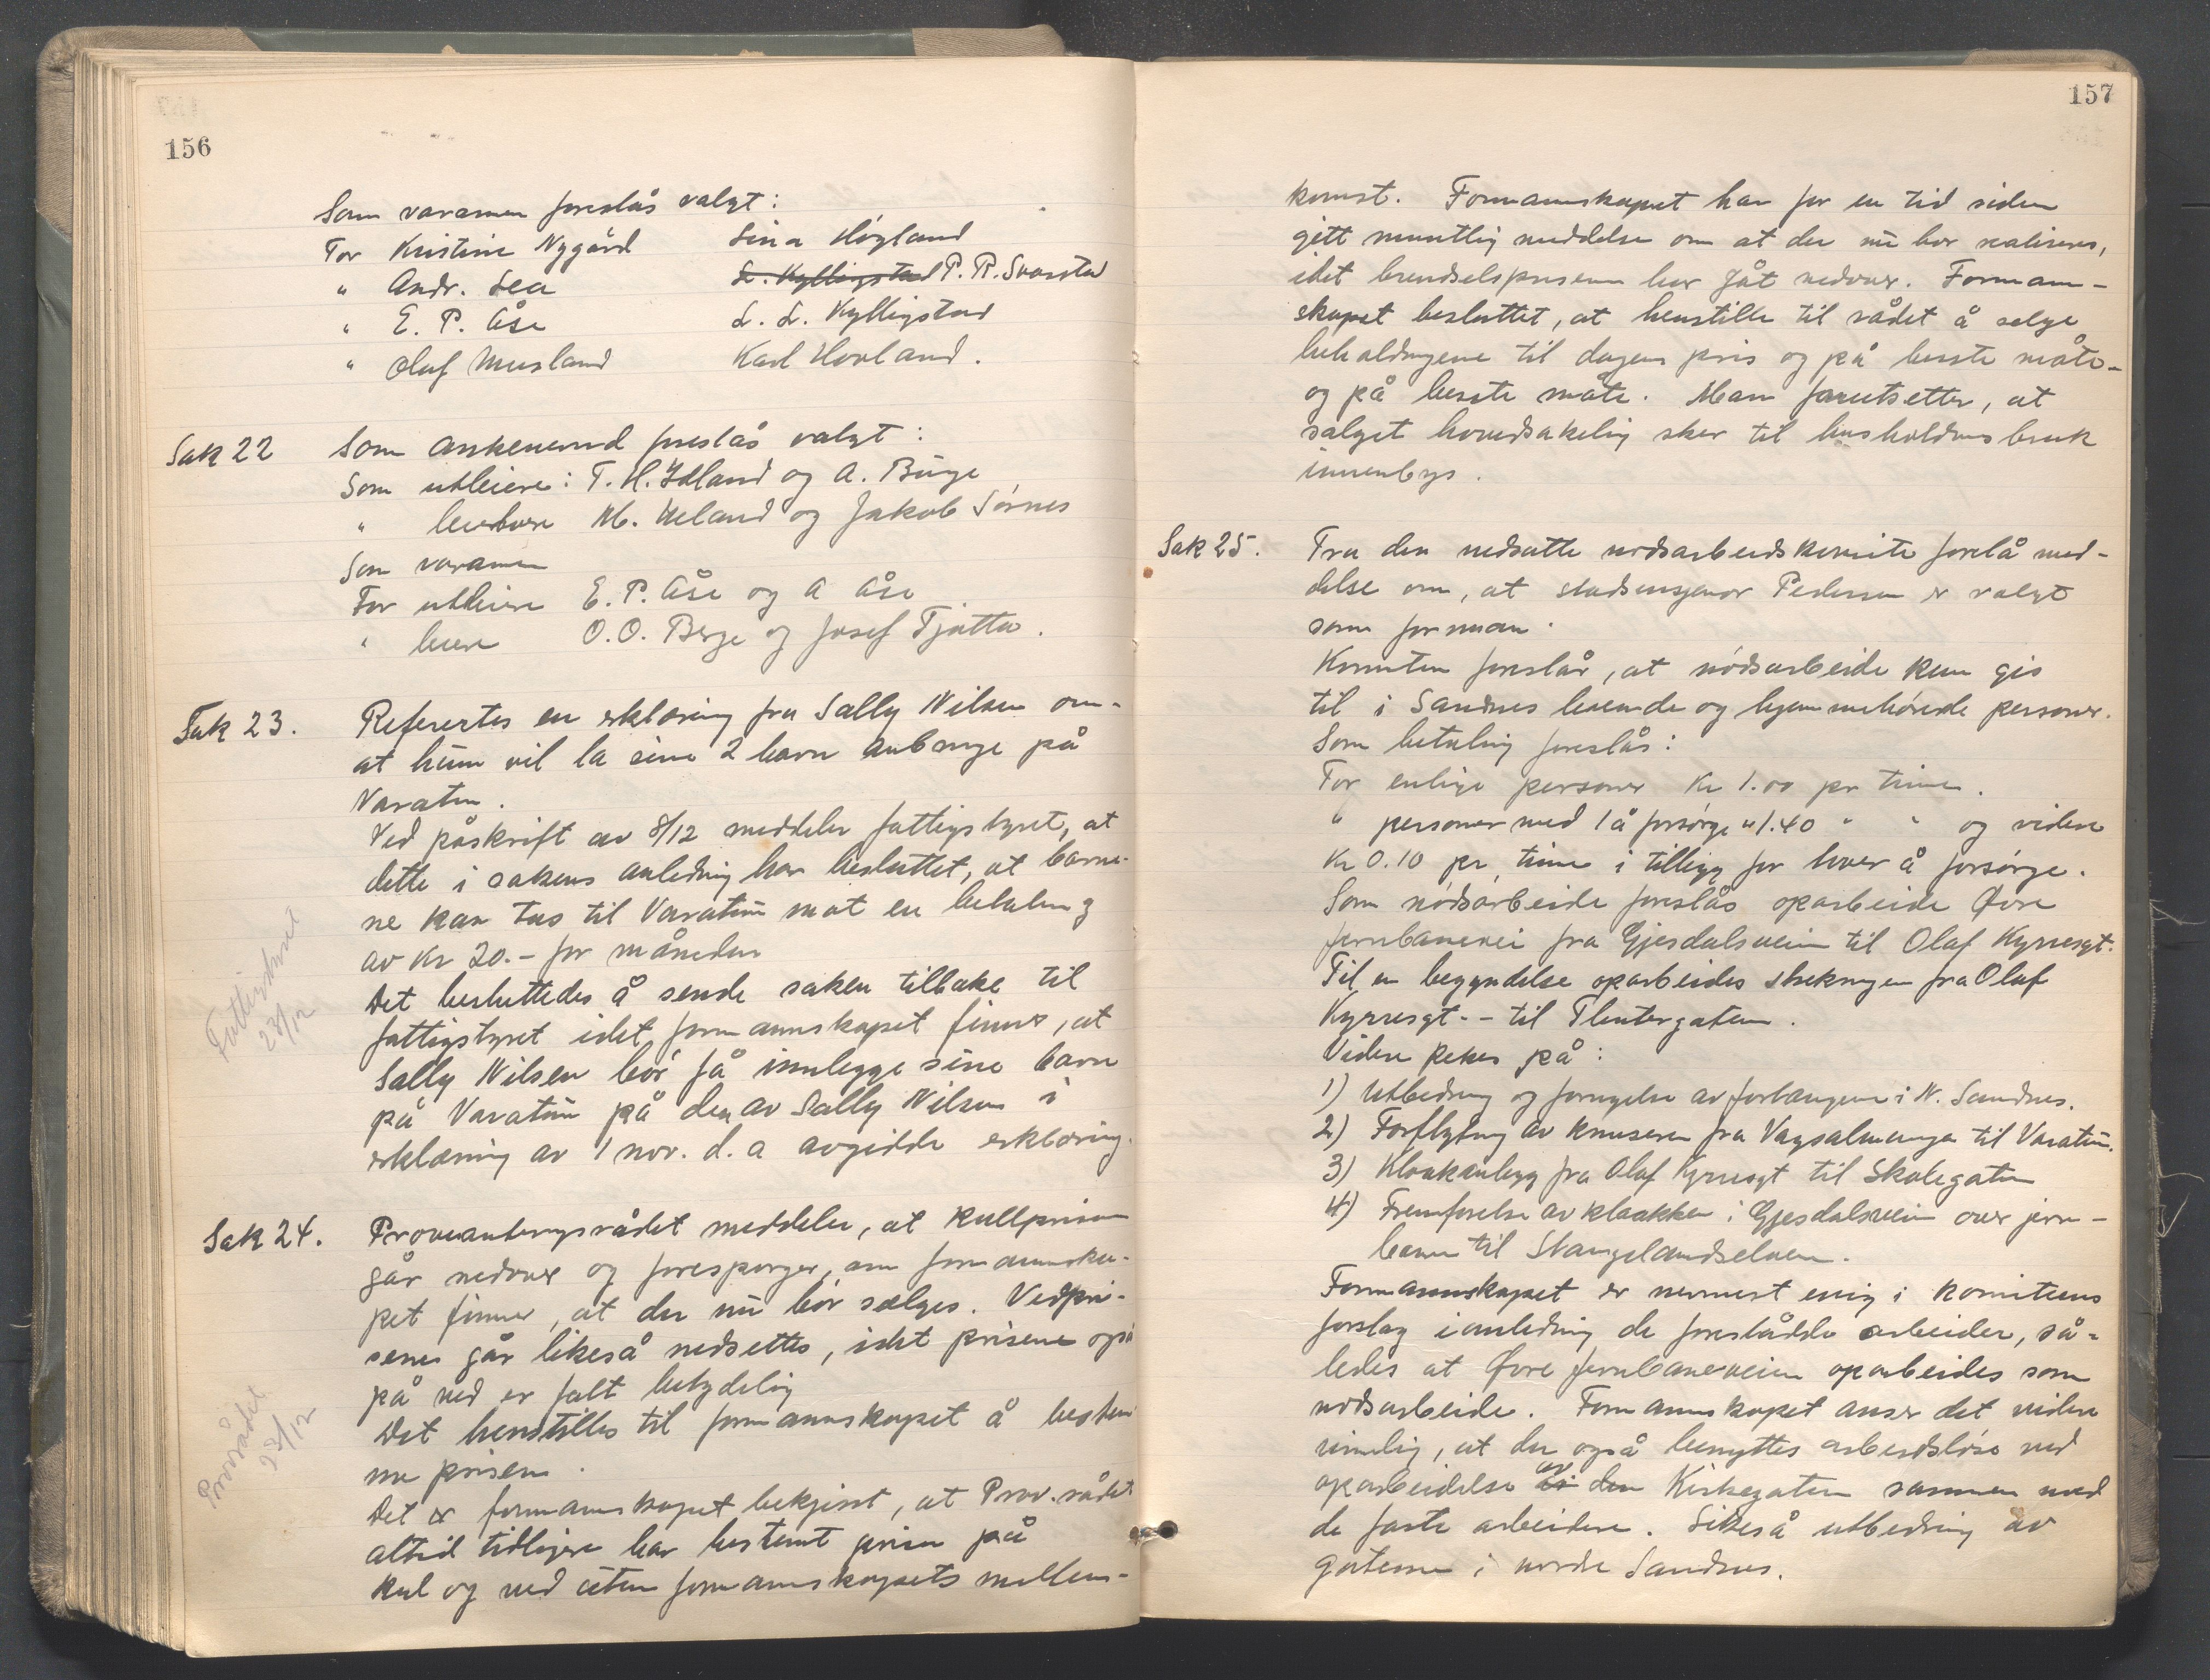 156
Som varamen foreslås valgt:
For Kristine Nygård Lina Høyland
" Andr. Lea L. Kylligstad P. R. Svarstad
" E. P. Åse L. L. Kylligstad
" Olaf Musland Karl Hovland.
Sak 22 Som ankenevnd foreslås valgt:
Som utleiere: T. H. Idland og A. Buge
" leieboere M. Ueland og Jakob Sørnes
Som varamen
For utleiere E. P. Åse og A Åse
" leiere O. O. Berge og Josef Tjøtta.
Sak 23. Refertes en erklæring fra Sally Nilsen om-
at hun vil la sine 2 barn anbringe på
Varatun.
Ved påskrift av 8/12 meddeler fattigstyret, at
dette i sakens anledning har besluttet, at barne-
ne kan tas til Varatun mot en betaling
av kr 20.- pr måneden
Det besluttedes å sende saken tilbake til
fattigstyret idet formannskapet finner, at
Sally Nilsen bør få innlegge sine barn
på Varatun på den av Sally Nilsen i
erklæring av 1 nov. d. a avgidde erklæring.
Fattigstyret
23/12
Sak 24. Provianteringsrådet meddeler, at kullprisen
går nedover og forespørger, om formannska-
pet finner, at der nu bør sælges. Vedpri-
sene går likeså nedsettes, idet prisene også
på ved er falt betydelig
Det henstilles til formannskapet å bestem
me prisen.
Det er formannskapet bekjent, at Prov. rådet
altid tidligere har bestemt prisen på
kul og ved uten formannskapets mellem-
Provrådet
23/12
157
komst. Formannskapet har for en tid siden
gitt muntlig meddelse om at der nu bør realiseres,
idet brendselsprisene har gåt nedover. Formann-
skapet besluttet, at henstille til rådet å selge
beholdningene til dagens pris og på beste måte-
og på beste måte. Man forutsetter, at
salget hovedsakelig sker til husholdnsbruk
innenbys.
Sak 25. Fra den nedsatte nødsarbeidskomite forelå med-
delse om, at stadsingeniør Pedersen er valgt
som forman.
Komiteen foreslår, at nødsarbeide kun gis
til i Sandnes boende og hjemmehørende personer.
Som betaling foreslås:
For enlige personer kr 1.00 pr time.
" personer med 1 å forsørge " 1.40 " " og videre
Kr 0.10 pr time i tillegg for hver å forsørge.
Som nødsarbeide foreslås oparbeide Øvre
jernbanevei fra Gjesdalsveien til Olaf Kyrresgt.
Til en begyndelse oparbeides strekningen fra Olaf
Kyrresgt.- til Flintergaten.
Videre pekes på:
1) Utbedring og fornyelse av fortaugene i N. Sandnes.
2) Forflytning av knuseren fra Vågsalmenningen til Varatun.
3) Kloakanlegg fra Olaf Kyrresgt til Skolegaten
4) Fremførelse av kloakken i Gjesdalsveien over jern-
banen til Stangelandselven.
Formannskapet er nermest enig i komiteens
forslag i anledning de foreslådde arbeider, så-
ledes at Øvre jernbaneveien oparbeides som
nødsarbeide. Formannskapet anser det videre
rimelig, at der også benyttes arbeidsløse ved
oparbeidelse av den Kirkegaten sammen med
de faste arbeidere. Likeså utbedring av
gatene i nordre Sandnes.